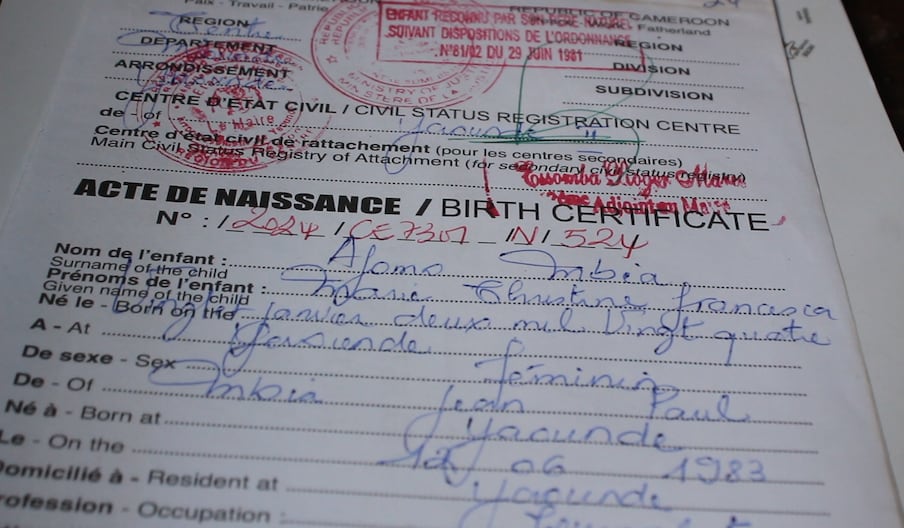 Paix - Travail - Patrie
REPUBLIC OF CAMEROON
Fatherland
REGION Centre
DÉPARTEMENT
ARRONDISSEMENT
ENFANT RECONNU PAR SON PERE NATUREL
SUIVANT DISPOSITIONS DE L'ORDONNANCE
N°81/02 DU 29 JUIN 1981
REGION
DIVISION
SUBDIVISION
MINISTRY OF JUSTICE
MINISTERE DE
Le Maire
CENTRE D'ETAT CIVIL / CIVIL STATUS REGISTRATION CENTRE
de - of Yaounde II
Centre d'état civil de rattachement (pour les centres secondaires)
Main Civil Status Registry of Attachment (for secondary civil status registry)
Essomba Roger
Adjoint au Maire
ACTE DE NAISSANCE / BIRTH CERTIFICATE
N° : / 2024 / CE7301 / N / 524
Nom de l'enfant : Afomo Mbia
Surname of the child
Prénoms de l'enfant : Marie Christine francesca
Given name of the child
Né le - Born on the Vingt janvier deux mil Vingt quatre
A - At Yaounde
De sexe - Sex féminin
De - Of Mbia Jean Paul
Né à - Born at Yaounde
Le - On the 06 1983
Domicilié à - Resident at Yaounde
Profession - Occupation :